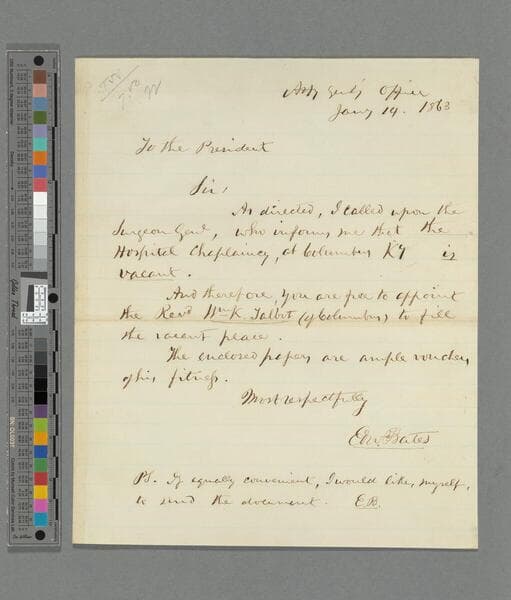 Atty Genl's Office
Jany 14. 1863
To the President
Sir,
As directed, I called upon the
Surgeon Genl, who informs me that the
Hospital Chaplaincy, at Columbus Ky is
vacant.
And therefore, you are free to appoint
the Revd Wm K. Talbot (of Columbus) to fill
the vacant place.
The enclosed papers are ample vouchers
of his fitness.
Most respectfully
Edw Bates
PS. If equally convenient, I would like, myself,
to send the document. E.B.